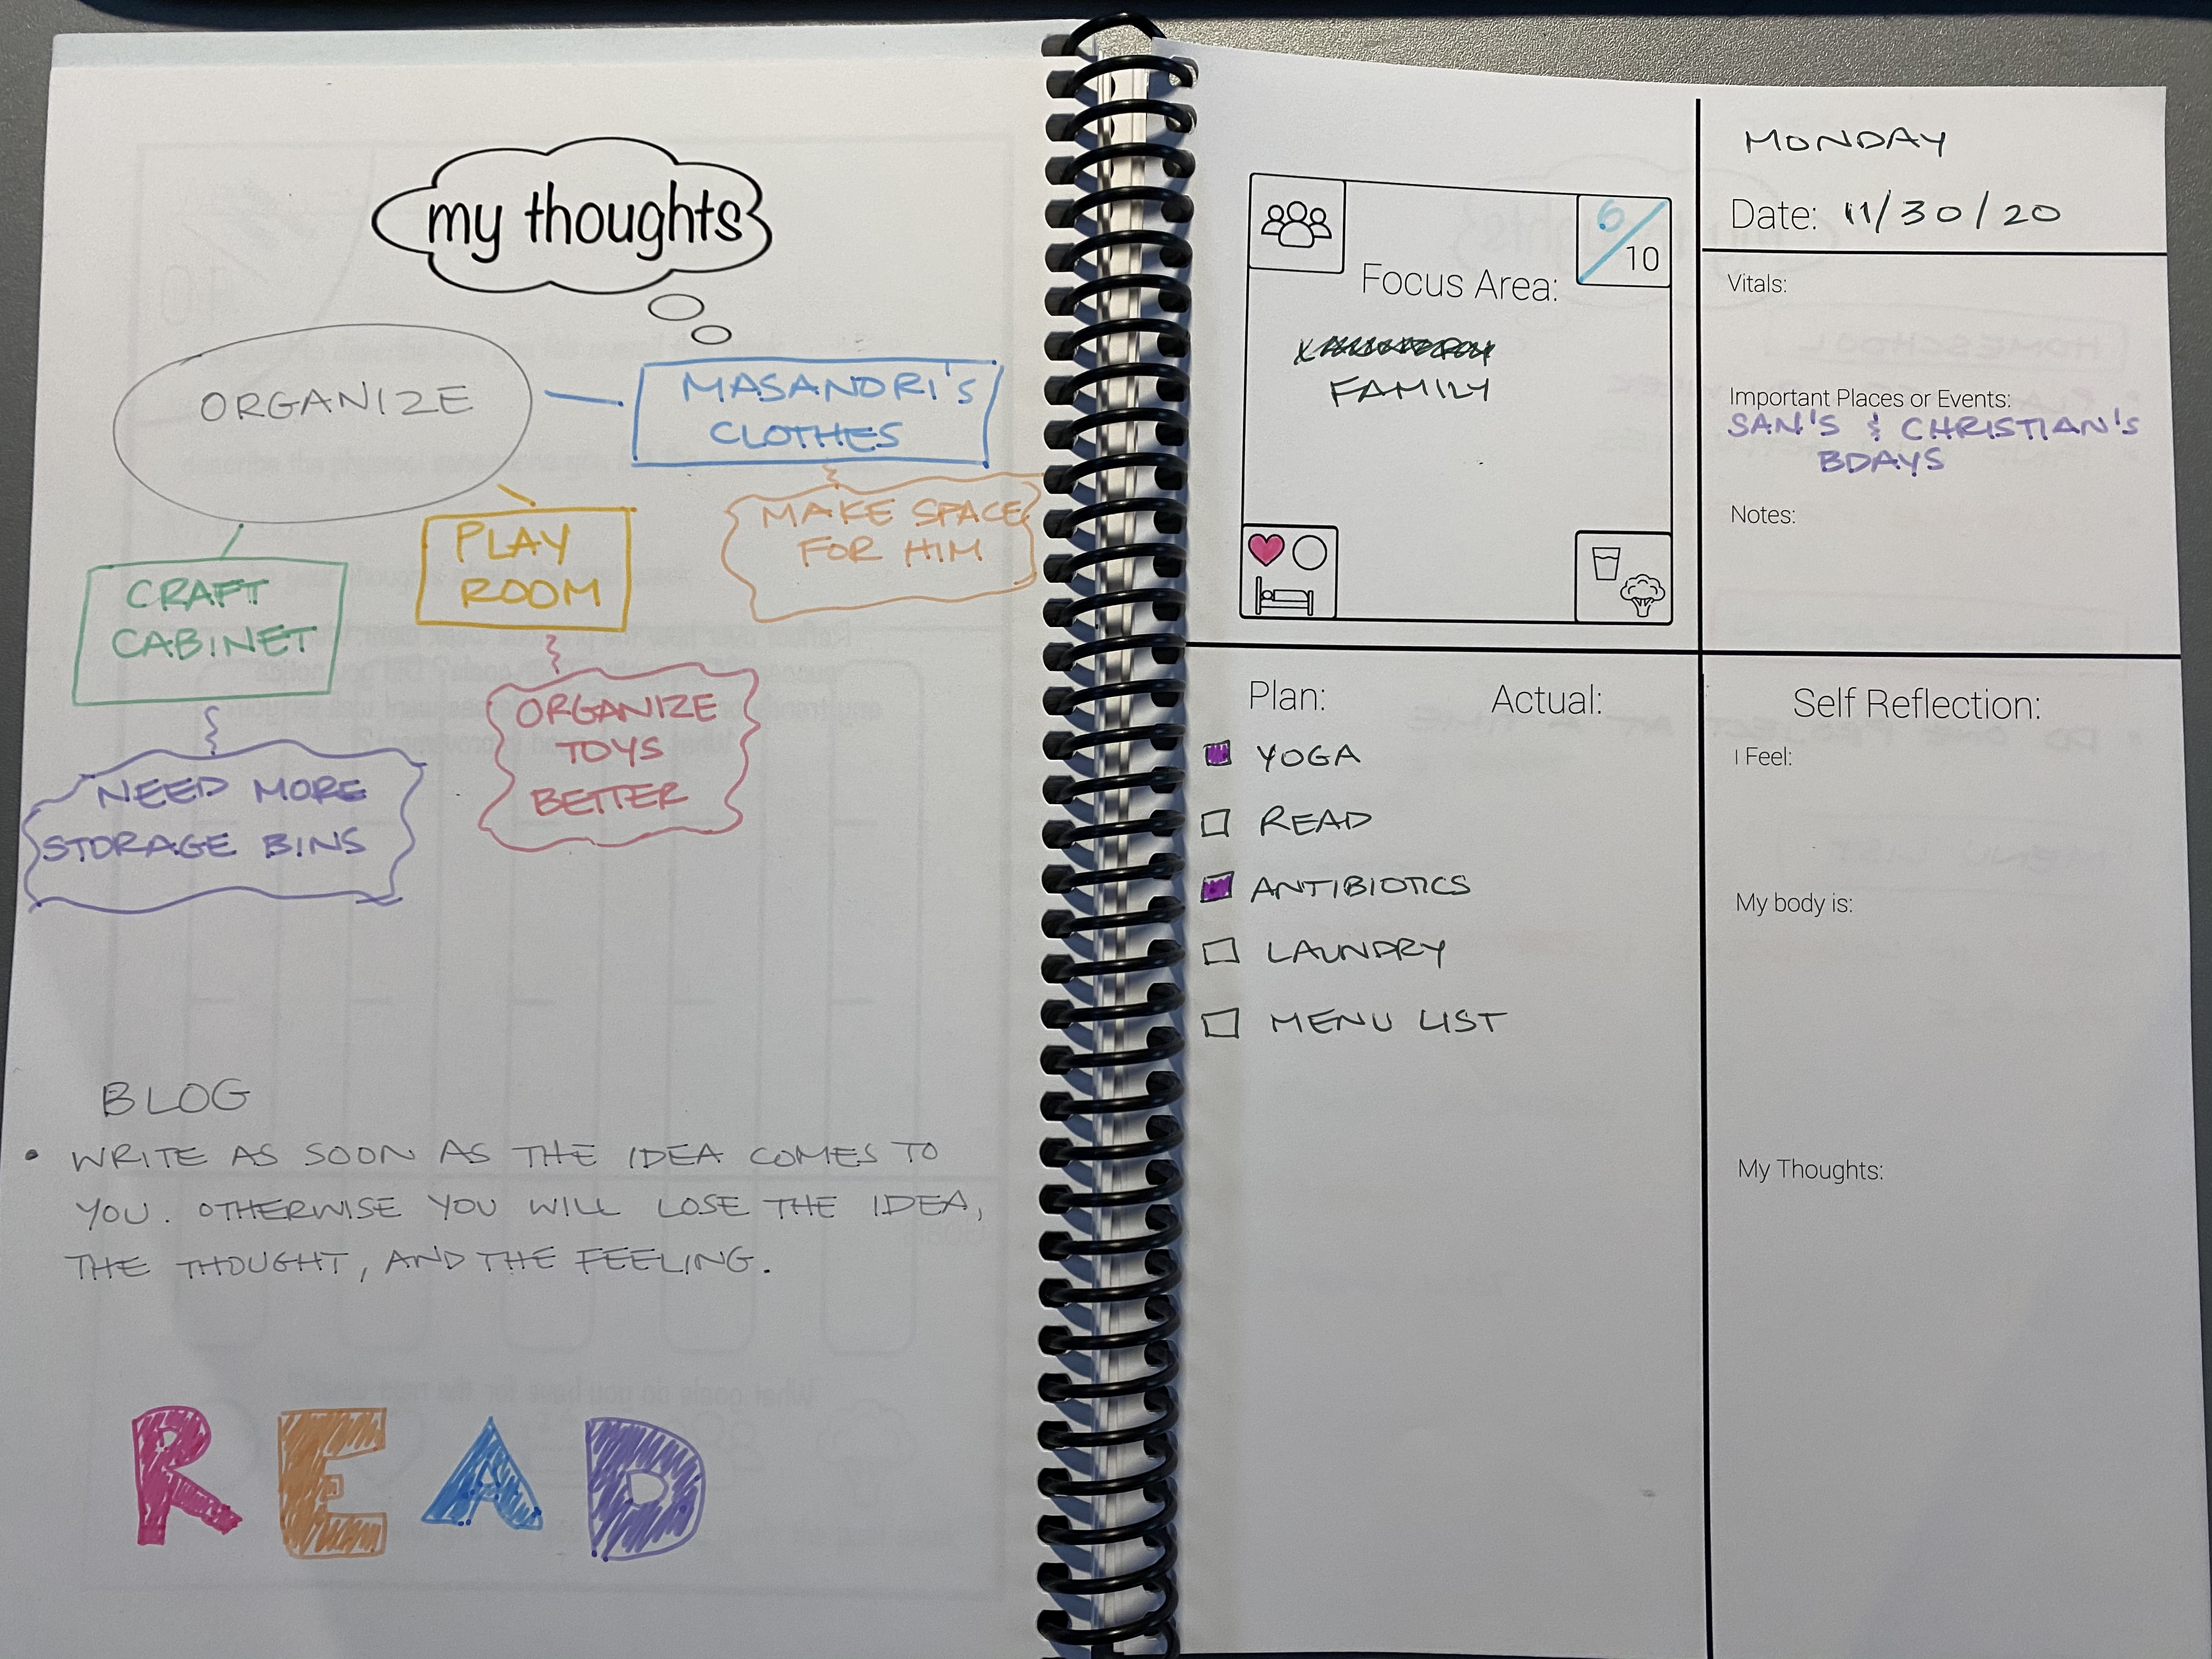 my thoughts
ORGANIZE
MASANDRI'S
CLOTHES
MAKE SPACE
FOR HIM
PLAY
ROOM
ORGANIZE
TOYS
BETTER
CRAFT
CABINET
NEED MORE
STORAGE BINS
BLOG
• WRITE AS SOON AS THE IDEA COMES TO
YOU. OTHERWISE YOU WILL LOSE THE IDEA,
THE THOUGHT, AND THE FEELING.
READ
MONDAY
Date: 11/30/20
6/10
Focus Area:
FAMILY
Vitals:
Important Places or Events:
SAN'S & CHRISTIAN'S
BDAYS
Notes:
Plan: Actual:
YOGA
READ
ANTIBIOTICS
LAUNDRY
MENU LIST
Self Reflection:
I Feel:
My body is:
My Thoughts: